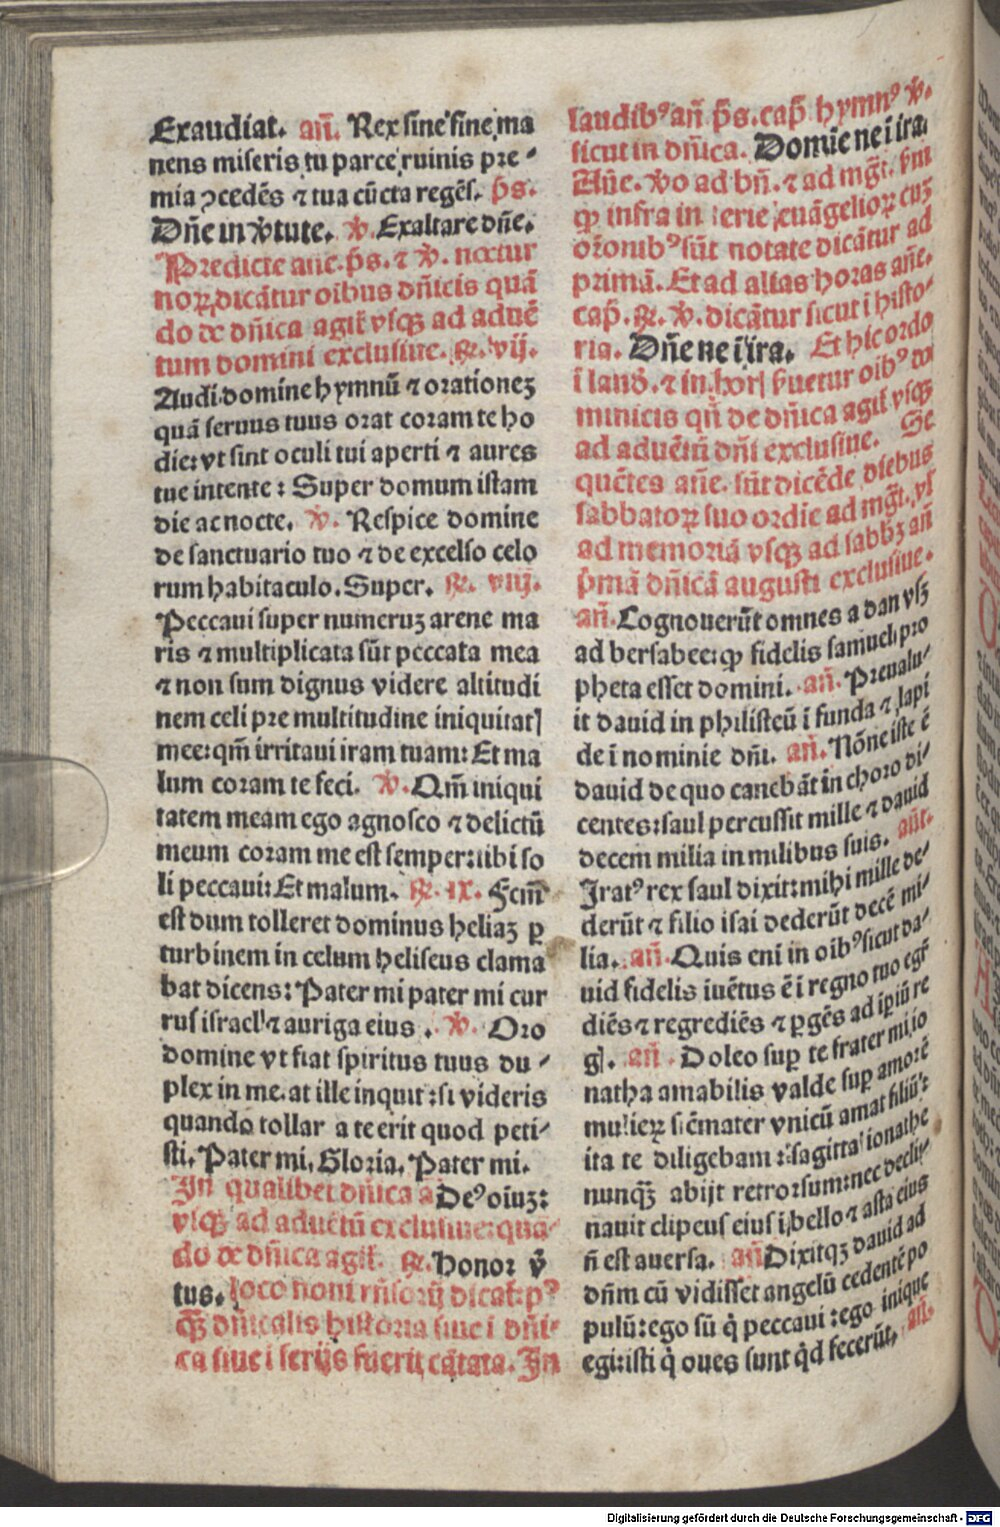 Exaudiat. añ. Rex sine fine ma
nens miseris tu parce ruinis pre⸗
mia ꝯcedẽs ⁊ tua cũcta regẽs. p̃s.
Dñe in v̾tute. ℣. Exaltare dñe.
Predicte añe. p̃s. ⁊ ℣. noctur
noꝝ dicãtur oibus dñicis quã
do de dñica agit̃ vsqꝫ ad aduẽ
tum domini exclusiue. ℞. vij.
Audi domine hymnũ ⁊ orationeꝫ
quã seruus tuus orat coram te ho
die: vt sint oculi tui aperti ⁊ aures
tue intente: Super domum istam
die ac nocte. ℣. Respice domine
de sanctuario tuo ⁊ de excelso celo
rum habitaculo. Super. ℞. viij.
Peccaui super numeruꝫ arene ma
ris ⁊ multiplicata sũt peccata mea
⁊ non sum dignus videre altitudi
nem celi pre multitudine iniquitatꝭ
mee: qm̃ irritaui iram tuam: Et ma
lum coram te feci. ℣. Qm̃ iniqui
tatem meam ego agnosco ⁊ delictũ
meum coram me est semper: tibi so
li peccaui: Et malum. ℞. ix. Fcm̃
est dum tolleret dominus heliaꝫ ꝑ
turbinem in celum heliseus clama
bat dicens: Pater mi pater mi cur
rus israel' ⁊ auriga eius. ℣. Oro
domine vt fiat spiritus tuus du⸗
plex in me. at ille inquit: si videris
quando tollar a te erit quod peti⸗
sti. Pater mi. Gloria. Pater mi.
In qualibet dñica a Deꝰ oĩuꝫ:
vsqꝫ ad aduẽtũ exclusiue: quã⸗
do de dñica agit̃. ℞. Honor v̾
tus. loco noni rñsorij dicat̃: pꝰ
qꝫ dñicalis historia siue i dñi⸗
ca siue i ferijs fuerit cãtata. In
laudibꝰ añ p̃s. cap̃ hymnꝰ ℣.
sicut in dñica. Domĩe ne ĩ ira.
Añe. v̾o ad bñ. ⁊ ad mgt̃. p̃m
ꝙ infra in serie euãgelioꝝ cuꝫ
orõnibꝰ sũt notate dicãtur ad
primã. Et ad alias horas añe.
cap̃. ℞. ℣. dicãtur sicut i histo⸗
ria. Dñe ne ĩ ira. Et hic ordo
ĩ laud̾. ⁊ in horꝭ s̾uetur oibꝰ do
minicis qñ de dñica agit̃ vsqꝫ
ad aduẽtũ dñi exclusiue. Se
quẽtes añe. sũt dicẽde diebus
sabbatoꝝ suo ordie ad mgt̃. vl̾
ad memoriã vsqꝫ ad sabbꝫ añ
p̾mã dñicã augusti exclusiue.
añ. Cognouerũt omnes a dan vsꝫ
ad bersabee: ꝙ fidelis samuel pro
pheta esset domini. añ. Preualu⸗
it dauid in philisteũ ĩ funda ⁊ lapi
de ĩ nominie dñi. añ. Nõne iste ẽ
dauid de quo canebãt in choro di⸗
centes: saul percussit mille ⁊ dauid
decem milia in milibus suis. añt.
Iratꝰ rex saul dixit: mihi mille de⸗
derũt ⁊ filio isai dederũt decẽ mi⸗
lia. añ. Quis eni in oibꝰ sicut da⸗
uid fidelis iuẽtus ẽ ĩ regno tuo egr̃
diẽs ⁊ regrediẽs ⁊ ꝑgẽs ad ip̃iũ re
gꝭ. añ. Doleo sup̱ te frater mi io
natha amabilis valde sup̱ amorẽ
mulieꝝ sic̃ mater vnicũ amat filiũ:
ita te diligebam: sagitta ionathe
nunqꝫ̃ abijt retrorsum: nec decli⸗
nauit clipeus eius ĩ bello ⁊ asta eius
ñ est auersa. añ Dixitqꝫ dauid ad
dñm cũ vidisset angelũ cedentẽ po
pulũ: ego sũ q̇ peccaui: ego inique
egi: isti q̇ oues sunt qd̾ fecerũt. añ.
Digitalisierung gefördert durch die Deutsche Forschungsgemeinschaft - DFG